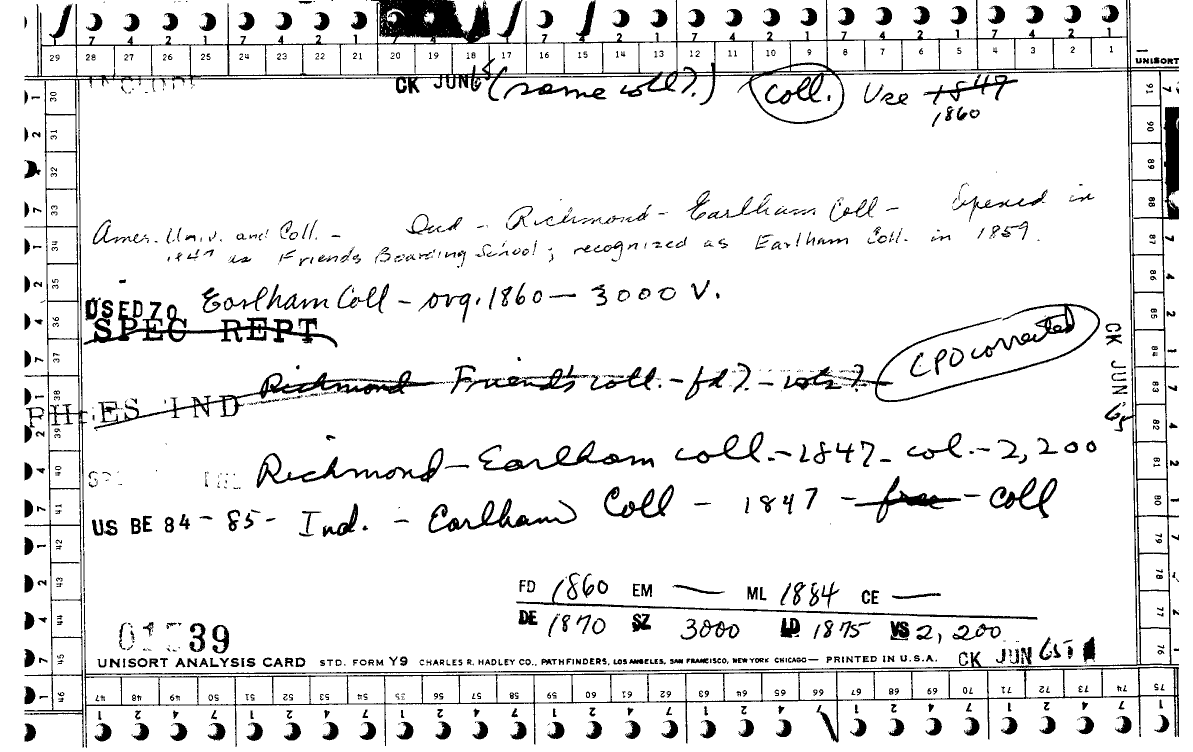 7 4 2 1 7 4 2 1 7 4 2 1 7 4 2 1 7 4 2 1 7 4 2 1
29 28 27 26 25 24 23 22 21 20 19 18 17 16 15 14 13 12 11 10 9 8 7 6 5 4 3 2 1
UNISORT
CK JUN 65 (same coll?) coll. Use 1847
1860
Amer. Univ. and Coll. - Ind - Richmond - Earlham Coll - Opened in
1847 as Friends Boarding School; recognized as Earlham Coll. in 1859.
USED 70 Earlham Coll - org. 1860 - 3000 V.
SPEC REPT
Richmond Friend's coll. - fd? - vols? -
CPO corrected
CK JUN 65
IND
Richmond - Earlham coll. - 1847 - col. - 2,200
US BE 84 - 85 - Ind. - Earlham Coll - 1847 - free - coll
FD 1860 EM — ML 1884 CE —
DE 1870 SZ 3000 LD 1875 VS 2,200
39
CK JUN 65
UNISORT ANALYSIS CARD STD. FORM Y9 CHARLES R. HADLEY CO., PATHFINDERS, LOS ANGELES, SAN FRANCISCO, NEW YORK CHICAGO — PRINTED IN U.S.A.
30 31 32 33 34 35 36 37 38 39 40 41 42 43 44 45 46
91 90 89 88 87 86 85 84 83 82 81 80 79 78 77 76
47 48 49 50 51 52 53 54 55 56 57 58 59 60 61 62 63 64 65 66 67 68 69 70 71 72 73 74 75